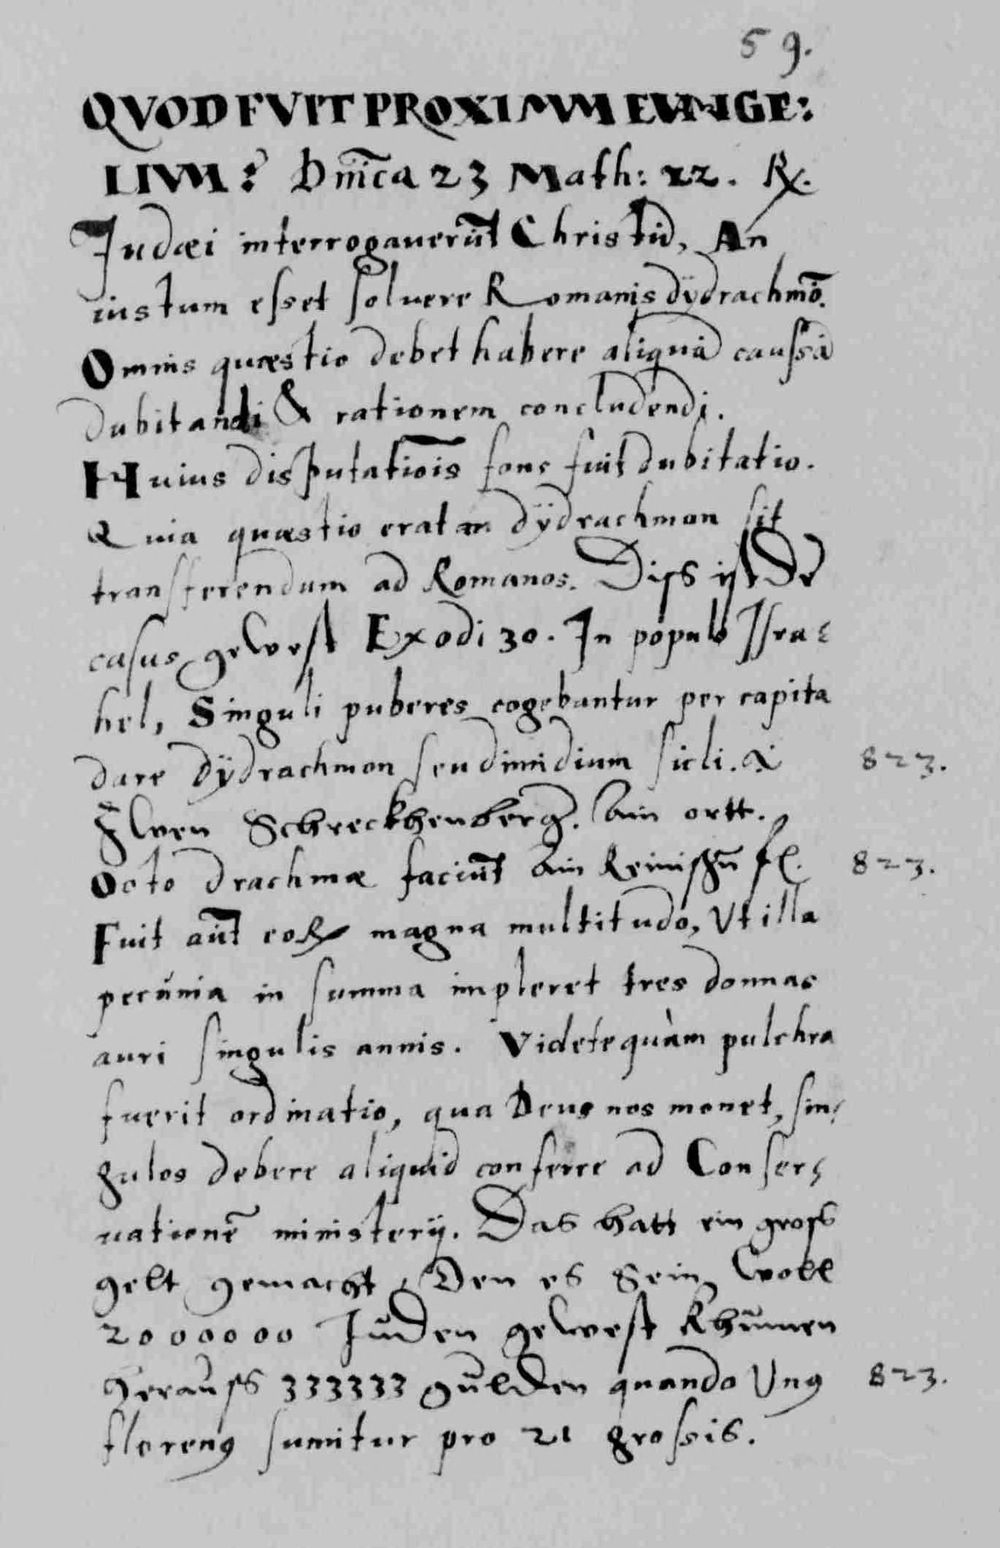 59.
QVOD FVIT PROXIMVM EVANGE:
LIVM? Dnica 23 Math: 22. Rx.
Judæi interrogauerūt Christū, An
iustum esset soluere Romanis dÿdrachmō.
Omnis quæstio debet habere aliquā caussā
dubitandi & rationem concludendi.
Huius disputatiōis fons fuit dubitatio.
Quia quæstio erat an dÿdrachmon sit
transferendum ad Romanos. Diss ist De
casus gewest Exodi 30. In populo Isra:
hel, Singuli puberes cogebantur per capita
dare dÿdrachmon seu dimidium sicli. 823.
Zwen Schreckhenberg. Ain ortt.
Octo drachmæ faciūt Ain Reinischn fl. 823.
Fuit aūt eoRx magna multitudo, Vt illa
pecúnia in summa impleret tres donnas
auri singulis annis. Videte quàm pulchra
fuerit ordinatio, qua Deus nos monet, sin:
gulos debere aliquid conferre ad Conser:
uationē ministerij. Das hatt ein gross
gelt gemacht, Den es Sein woll
2000000 Juden gewest Khumen
herauss 333333 gulden quando Vnꝰ 823.
florenꝰ sumitur pro 21 grossis.